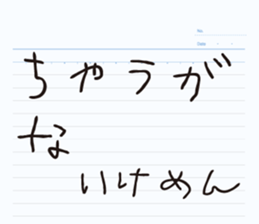 No.
Date
ちゃうが
な
いけめん